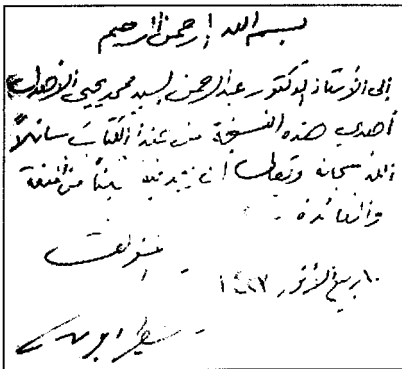 بسم الله الرحمن الرحيم
إلى الأستاذ الدكتور عبد الرحمن السيد محمد يحيى الأهدل
أهدي هذه النسخة من هذا الكتاب سائلاً
الله سبحانه وتعالى أن يزيدنا من المنفعة
والفائدة .
المؤلف
١٠ ربيع الأنور